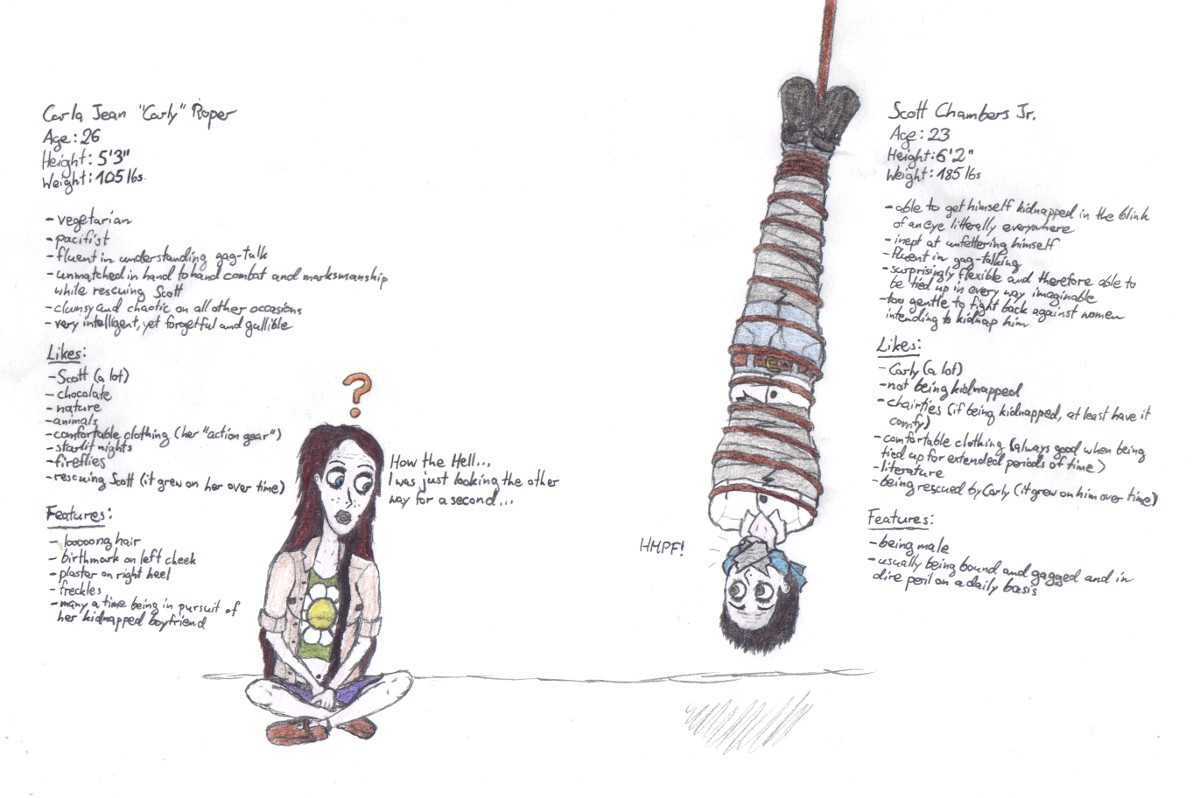 Carla Jean "Carly" Roper
Age: 26
Height: 5'3"
Weight: 105 lbs.
- vegetarian
- pacifist
- fluent in understanding gag-talk
- unmatched in hand to hand combat and marksmanship
while rescuing Scott
- clumsy and chaotic on all other occasions
- very intelligent, yet forgetful and gullible
Likes:
- Scott (a lot)
- chocolate
- nature
- animals
- comfortable clothing (her "action gear")
- starlit nights
- fireflies
- rescuing Scott (it grew on her over time)
Features:
- looooong hair
- birthmark on left cheek
- plaster on right heel
- freckles
- many a time being in pursuit of
her kidnapped boyfriend
?
How the Hell...
I was just looking the other
way for a second...
HMPF!
Scott Chambers Jr.
Age: 23
Height: 6'2"
Weight: 185 lbs
- able to get himself kidnapped in the blink
of an eye litterally everywhere
- inept at unfettering himself
- fluent in gag-talking
- surprisingly flexible and therefore able to
be tied up in every way imaginable
- too gentle to fight back against women
intending to kidnap him
Likes:
- Carly (a lot)
- not being kidnapped
- chairties (if being kidnapped, at least have it
comfy)
- comfortable clothing (always good when being
tied up for extended periods of time)
- literature
- being rescued by Carly (it grew on him over time)
Features:
- being male
- usually being bound and gagged and in
dire peril on a daily basis